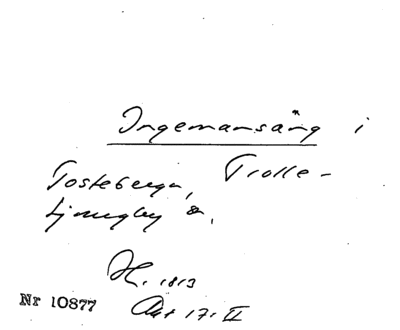 Ingemansäng i
Tosteberga, Trolle-
ljungby s,
H. 1813
Nr 10877 Akt 171 II